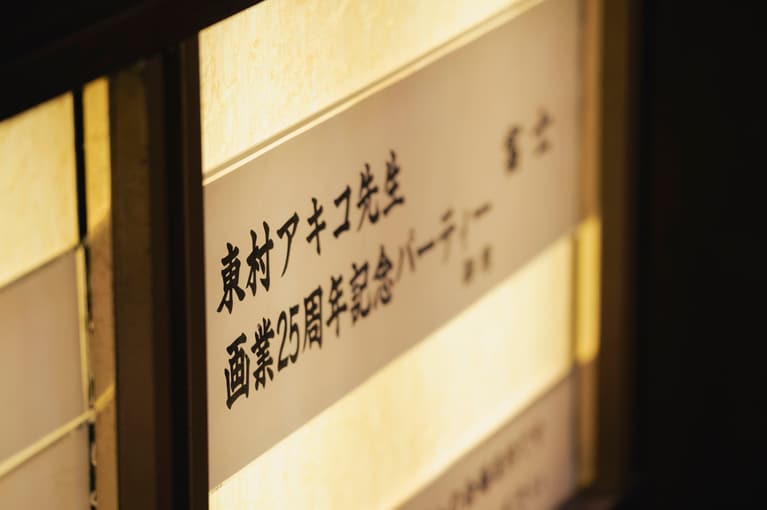 東村アキコ先生
画業25周年記念パーティー
富士